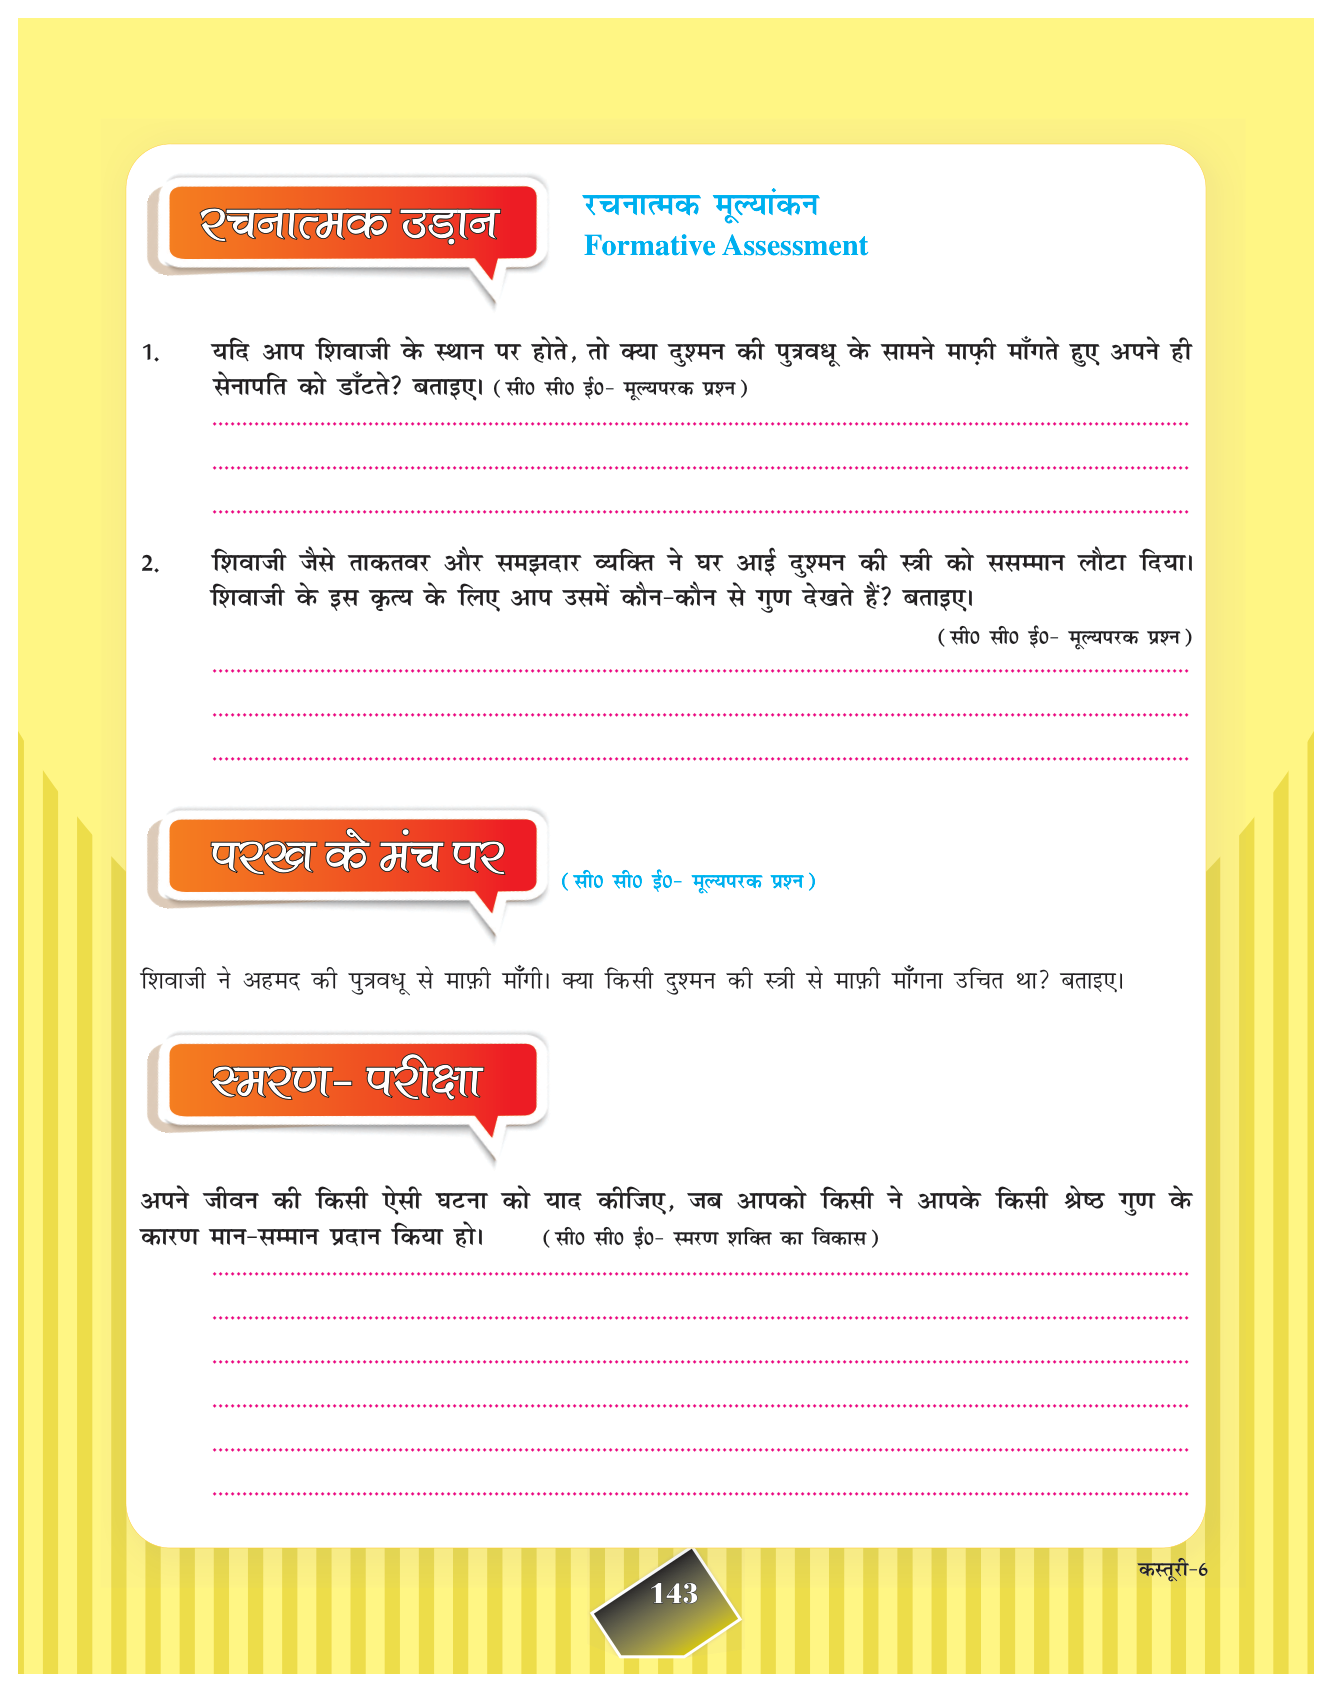 रचनात्मक उड़ान
रचनात्मक मूल्यांकन
Formative Assessment
1. यदि आप शिवाजी के स्थान पर होते, तो क्या दुश्मन की पुत्रवधू के सामने माफ़ी माँगते हुए अपने ही
सेनापति को डाँटते? बताइए। (सी0 सी0 ई0- मूल्यपरक प्रश्न)
2. शिवाजी जैसे ताकतवर और समझदार व्यक्ति ने घर आई दुश्मन की स्त्री को ससम्मान लौटा दिया।
शिवाजी के इस कृत्य के लिए आप उसमें कौन-कौन से गुण देखते हैं? बताइए।
(सी0 सी0 ई0- मूल्यपरक प्रश्न)
परख के मंच पर
(सी0 सी0 ई0- मूल्यपरक प्रश्न)
शिवाजी ने अहमद की पुत्रवधू से माफ़ी माँगी। क्या किसी दुश्मन की स्त्री से माफ़ी माँगना उचित था? बताइए।
स्मरण- परीक्षा
अपने जीवन की किसी ऐसी घटना को याद कीजिए, जब आपको किसी ने आपके किसी श्रेष्ठ गुण के
कारण मान-सम्मान प्रदान किया हो। (सी0 सी0 ई0- स्मरण शक्ति का विकास)
कस्तूरी-6
143